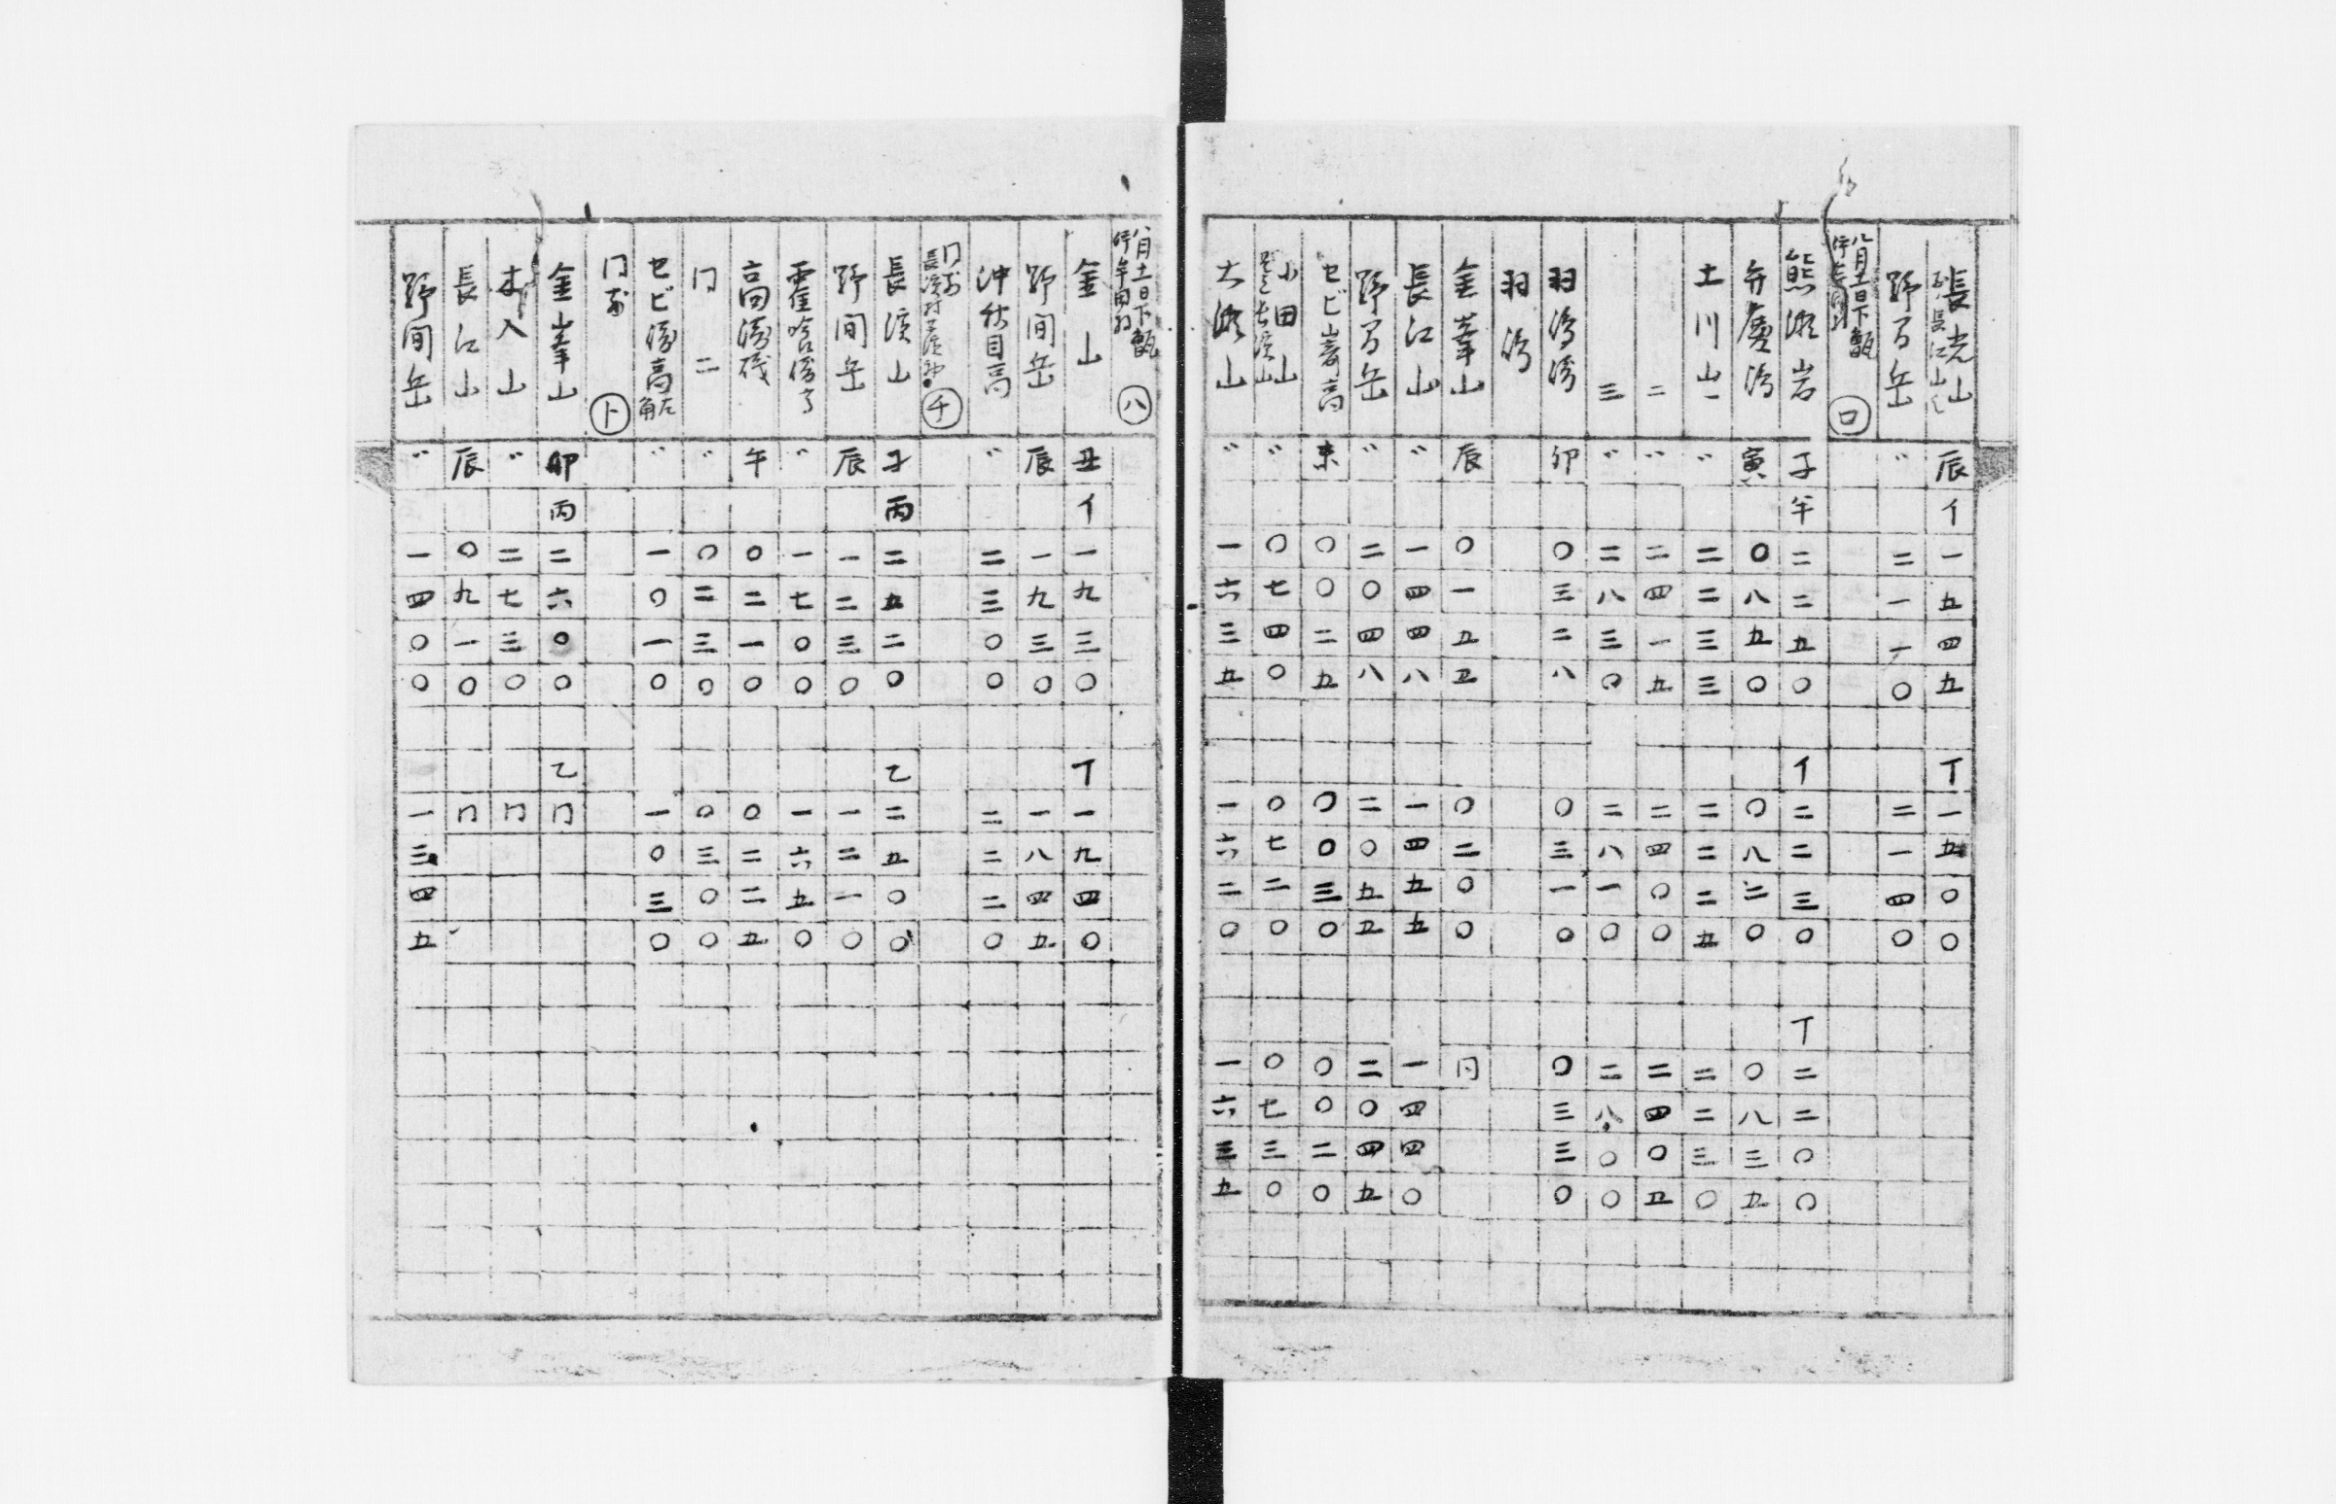 辰 イ 一五四五 丁 一五〇〇
野間岳 〃 二一一〇 二一四〇
八月十一日下甑 ロ
熊瀬岩 子 午 二二五〇 イ 二二三〇 丁 二二〇〇
弁慶 寅 〇八五〇 〇八二〇 〇八三五
土川山一 〃 二二三三 二二二五 二二三〇
二 〃 二四一五 二四〇〇 二四〇五
三 〃 二八三〇 二八一〇 二八〇〇
羽 卯 〇三二八 〇三一〇 〇三三〇
羽
金峯山 辰 〇一五五 〇二〇〇 同
長江山 〃 一四四八 一四五五 一四四〇
野間岳 〃 二〇四八 二〇五五 二〇四五
セビ 高 未 〇〇二五 〇〇三〇 〇〇二〇
小田山 〃 〇七四〇 〇七二〇 〇七三〇
大瀬山 〃 一六三五 一六二〇 一六三五
八月十一日下甑 ハ
金山 丑 イ 一九三〇 丁 一九四〇
野間岳 辰 一九三〇 一八四五
沖秋目高 〃 二三〇〇 二二二〇
同前 チ
長濱山 子 丙 二五二〇 乙 二五〇〇
野間岳 辰 一二三〇 一二一〇
〃 一七〇〇 一六五〇
高 礒 午 〇二一〇 〇二二五
同 二 〃 〇二三〇 〇三〇〇
セビ 高 左角 〃 一〇一〇 一〇三〇
同前 ト
金峯山 卯 丙 二六〇〇 乙 同
入山 〃 二七三〇 同
長江山 辰 〇九一〇 同
野間岳 〃 一四〇〇 一三四五